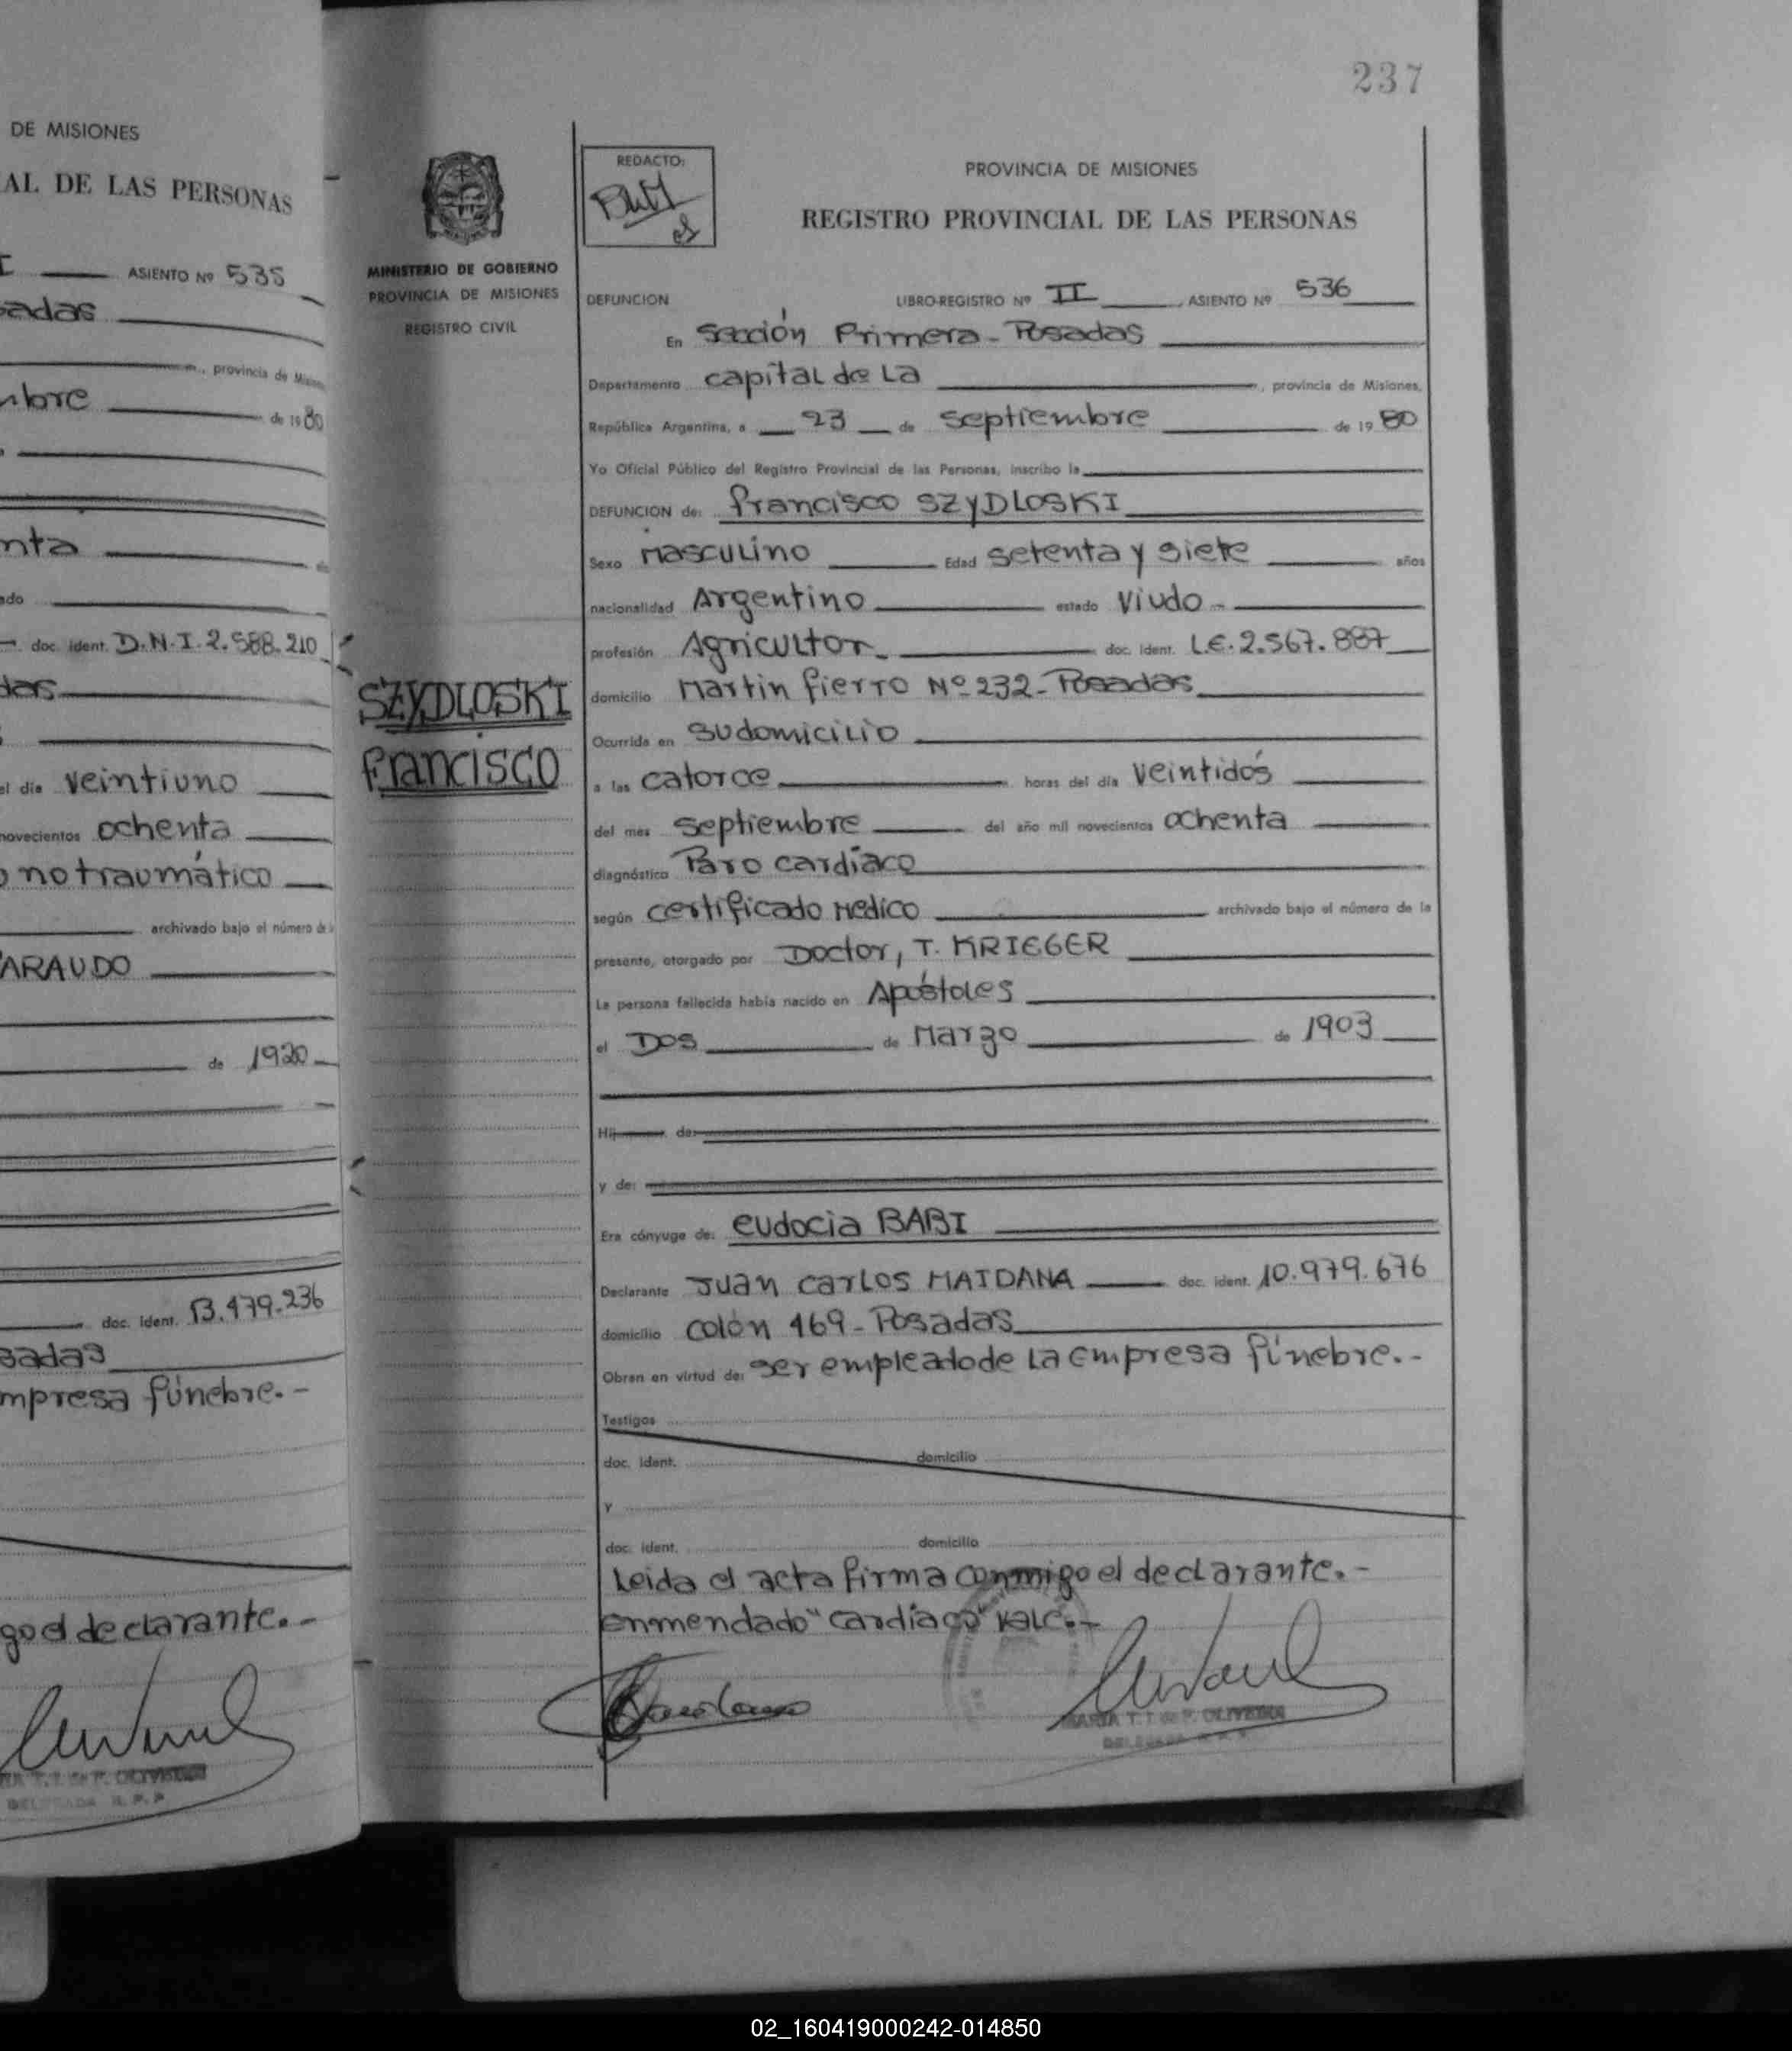 DE MISIONES
AL DE LAS PERSONAS
ASIENTO Nº 535
adas
provincia de
mbre de 1980
nta
ado
doc. ident. D.N.I. 2.588.210
das
el día veintiuno
novecientos ochenta
o no traumático
archivado bajo el número de
ARAUDO
de 1920
doc. ident. 13.479.236
sadas
mpresa fúnebre.-
go el declarante.-
DELEGADA R. P. P.
237
MINISTERIO DE GOBIERNO
PROVINCIA DE MISIONES
REGISTRO CIVIL
SZYDLOSKI
francisco
REDACTO:
PROVINCIA DE MISIONES
REGISTRO PROVINCIAL DE LAS PERSONAS
DEFUNCION LIBRO-REGISTRO Nº II, ASIENTO Nº 536
En Sección Primera - Posadas
Departamento capital de La, provincia de Misiones,
República Argentina, a 23 de septiembre de 1980
Yo Oficial Público del Registro Provincial de las Personas, inscribo la
DEFUNCION de: francisco SZYDLOSKI
Sexo Masculino Edad setenta y siete años
nacionalidad Argentino estado viudo -
profesión Agricultor - doc. ident. L.E. 2.567.887
domicilio Martin fierro Nº 232 - Posadas
Ocurrida en su domicilio
a las catorce horas del día veintidós
del mes septiembre del año mil novecientos ochenta
diagnóstico Paro cardíaco
según certificado Medico archivado bajo el número de la
presente, otorgado por Doctor, T. KRIEGER
La persona fallecida había nacido en Apóstoles
el Dos de Marzo de 1903
Hij de:
y de:
Era cónyuge de: eudocia BABI
Declarante Juan Carlos MAIDANA doc. ident. 10.979.676
domicilio colón 469 - Posadas
Obran en virtud de: ser empleado de la empresa fúnebre.-
Testigos
doc. ident. domicilio
y
doc. ident. domicilio
Leida el acta firma conmigo el declarante.-
Enmendado "cardíaco" vale.-
MARIA T. I. de P. OLIVEIRA
02_160419000242-014850